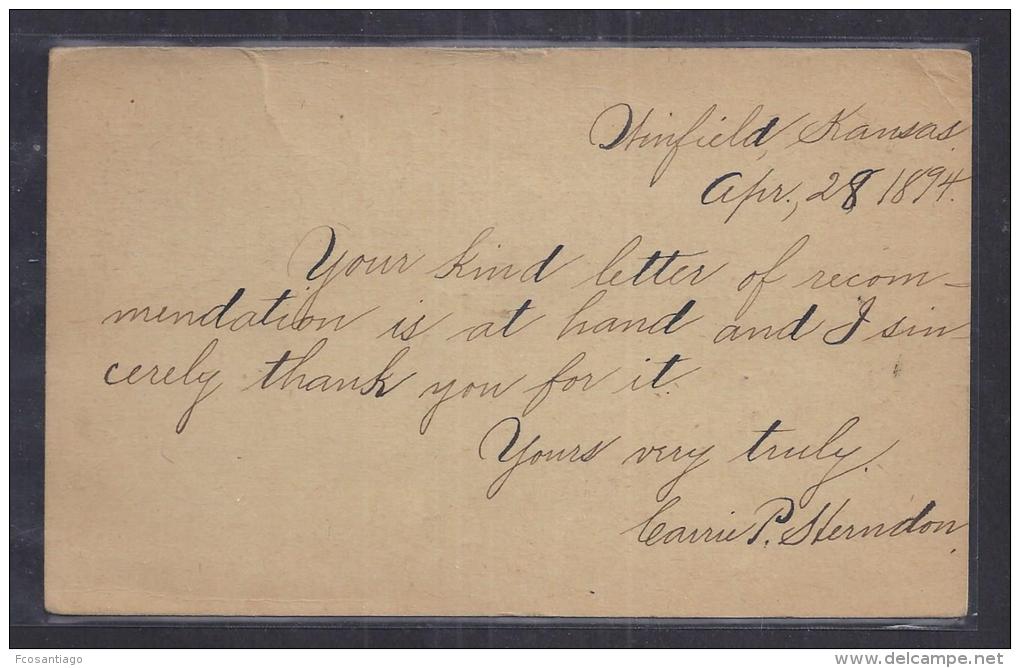 Winfield, Kansas.
Apr., 28, 1894.
Your kind letter of recom-
mendation is at hand and I sin-
cerely thank you for it.
Yours very truly.
Carrie P. Herndon.
Fcosantiago
www.delcampe.net